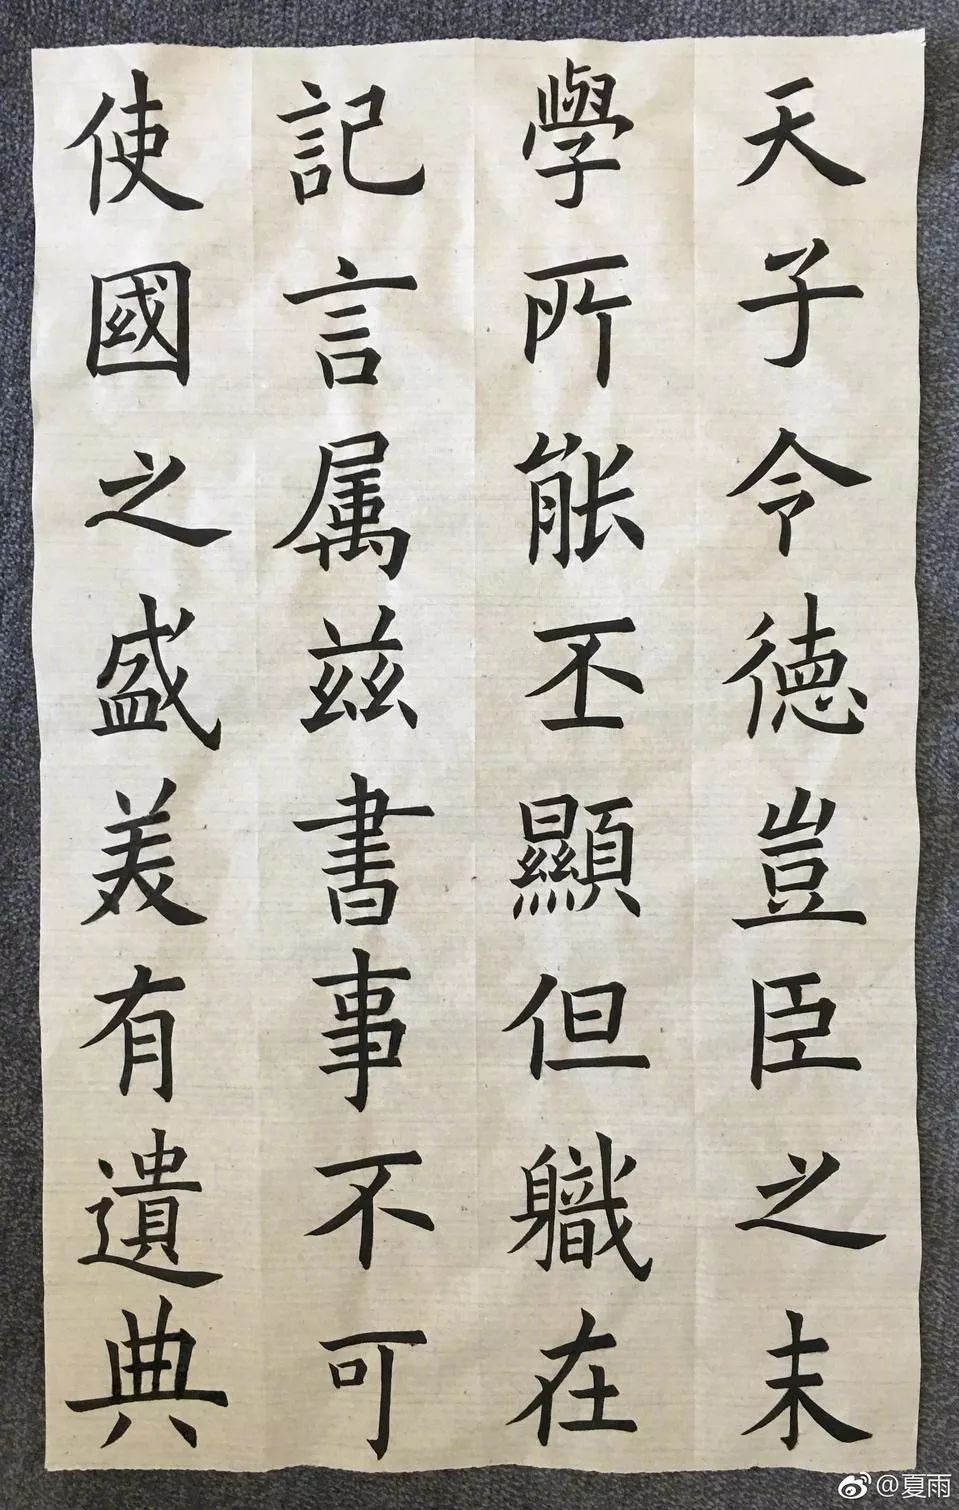 天子令德豈臣之末
學所能丕顯但職在
記言属兹書事不可
使國之盛美有遺典
@夏雨